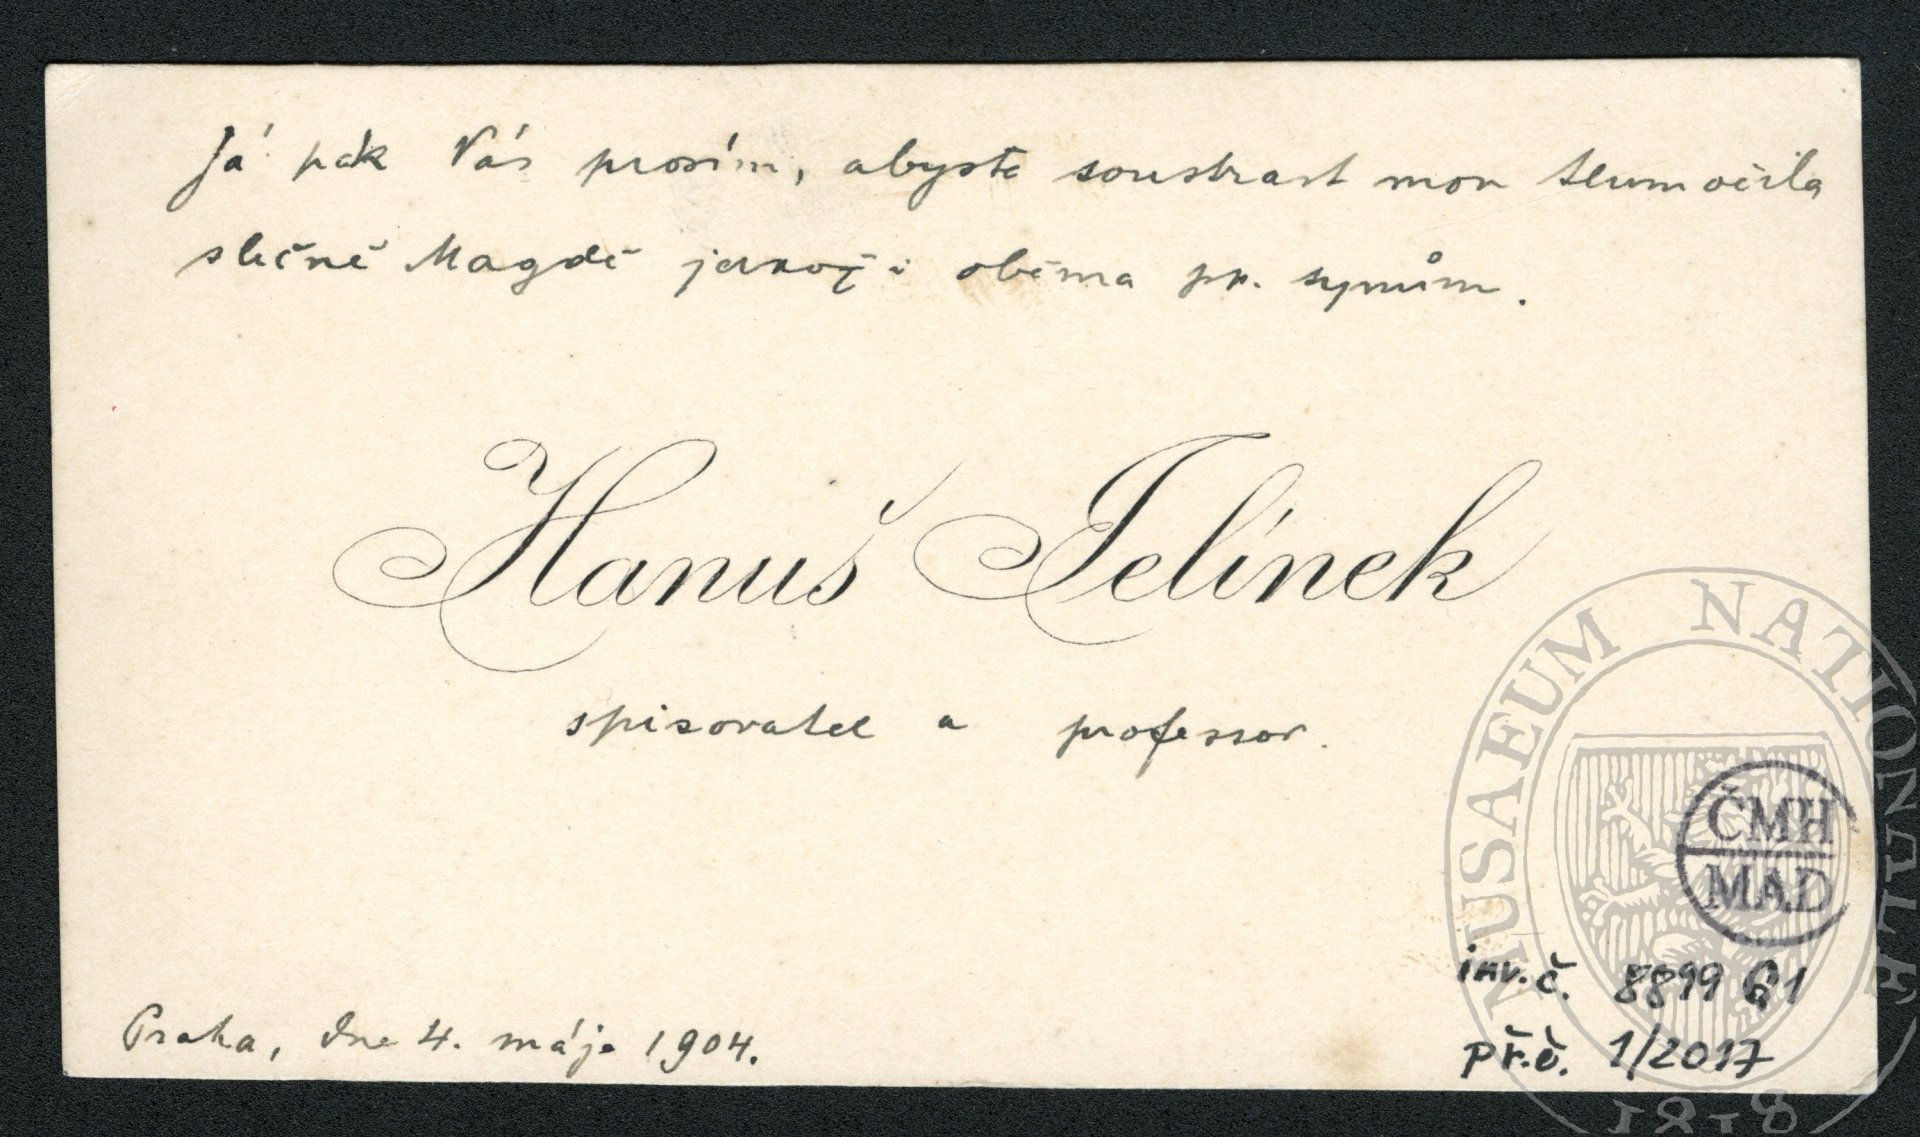 Já pak Vás prosím, abyste soustrast mou tlumočila
slečně Magdě jakož i oběma pp. synům.
Hanuš Jelínek
spisovatel a professor.
Praha, dne 4. máje 1904.
MUSAEUM NATIONALE
ČMH
MAD
inv. č. 8899 G1
př. č. 1/2017
1818